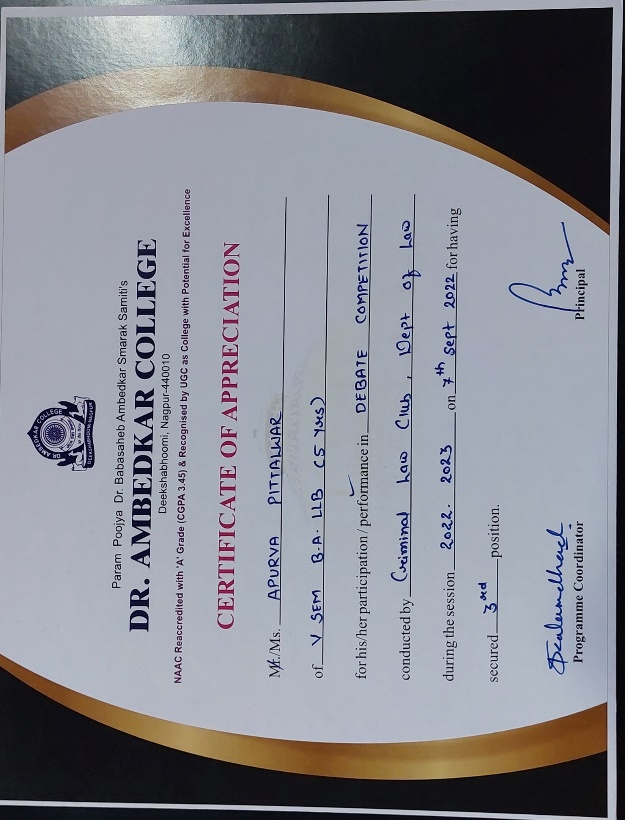 DR. AMBEDKAR COLLEGE
DEEKSHABHOOMI, NAGPUR
Param Poojya Dr. Babasaheb Ambedkar Smarak Samiti's
DR. AMBEDKAR COLLEGE
Deekshabhoomi, Nagpur-440010
NAAC Reaccredited with 'A' Grade (CGPA 3.45) & Recognised by UGC as College with Potential for Excellence
CERTIFICATE OF APPRECIATION
Mr./Ms. APURVA PITTALWAR
of V SEM B.A. LLB (5 Yrs)
for his/her participation / performance in DEBATE COMPETITION
conducted by Criminal Law Club, Dept of Law
during the session 2022-2023 on 7th Sept 2022 for having
secured 3rd position.
Programme Coordinator
Principal